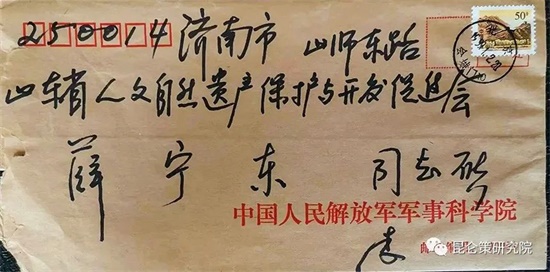 250014 济南市 山师东路
山东省人文自然遗产保护与开发促进会
薛宁东 同志 啟
中国人民解放军军事科学院
昆仑策研究院